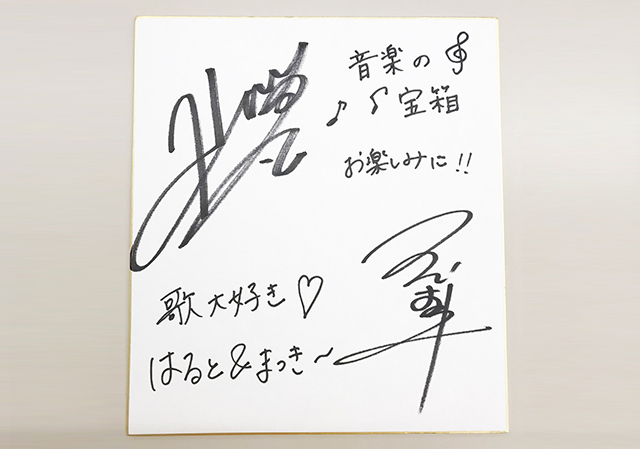 音楽の
宝箱
お楽しみに!!
歌大好き♡
はると&まっきー